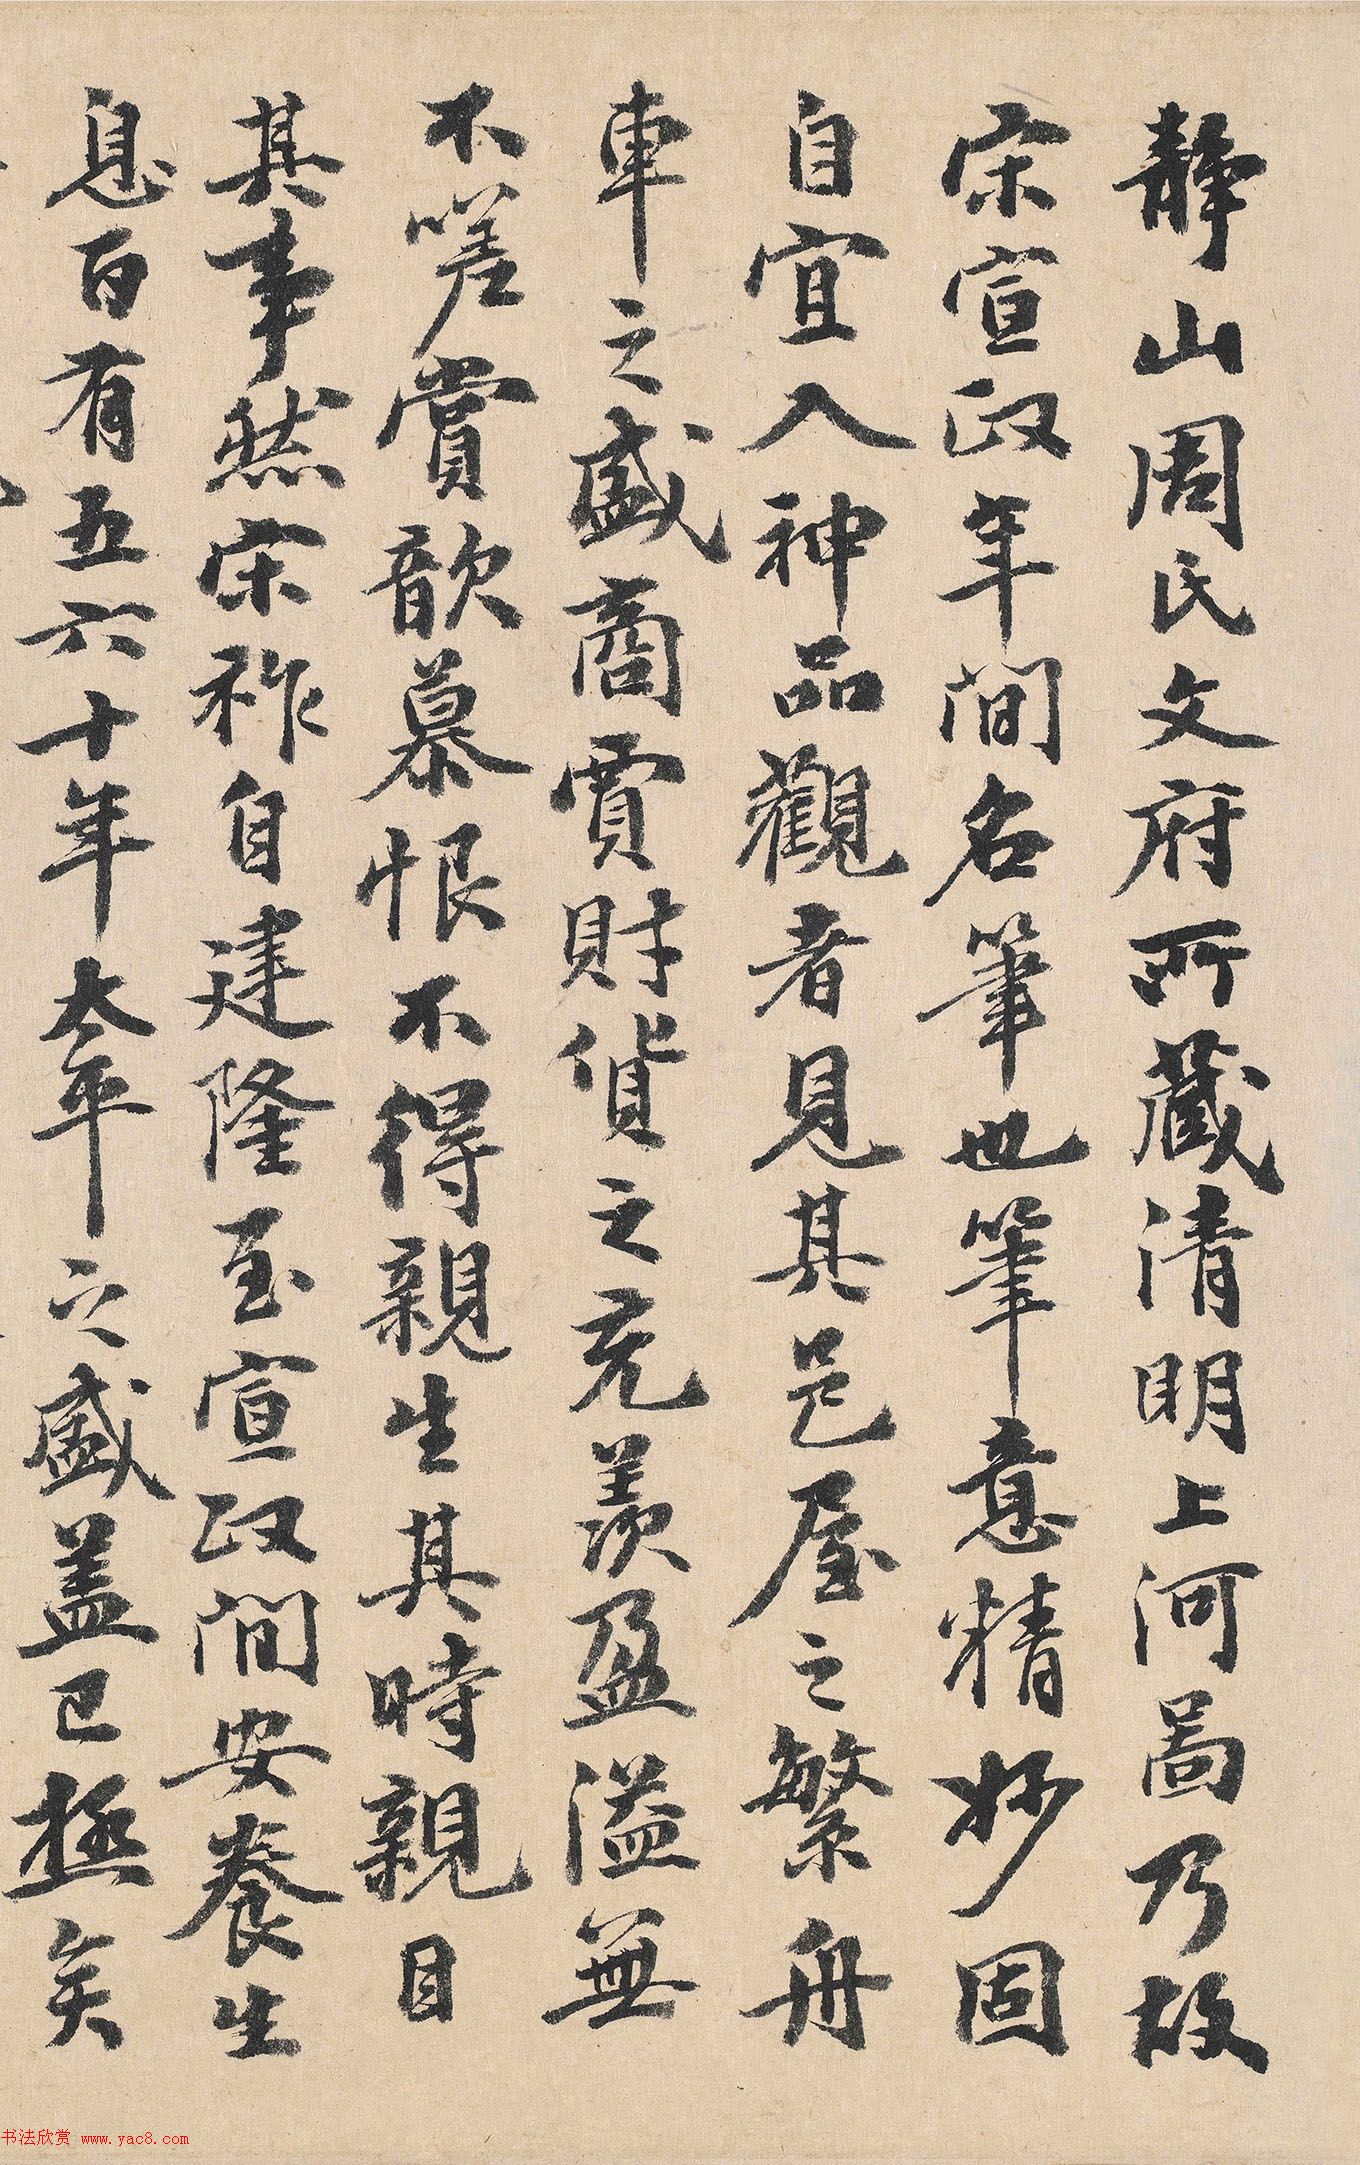 靜山周氏文府所藏清明上河啚乃故
宋宣政年間名筆也筆意精妙固
自宜入神品觀者見其邑屋之繁舟
車之盛商賈財貨之充羨盈溢無
不嗟賞歆慕恨不得親生其時親目
其事然宋祚自建隆至宣政間安養生
息百有五六十年太平之盛蓋已極矣
书法欣赏 www.yac8.com